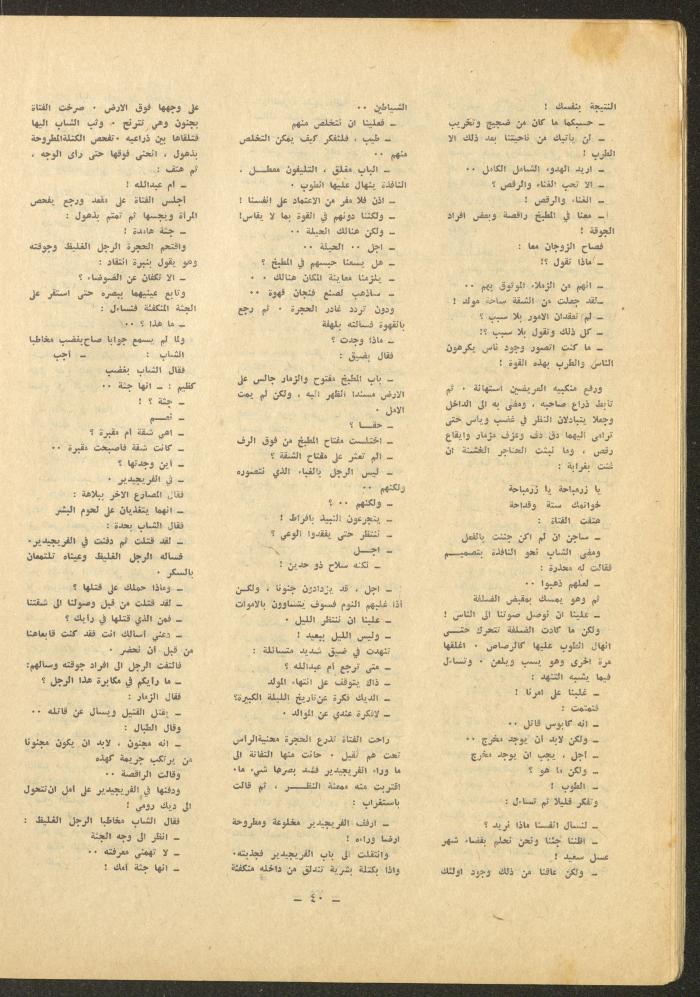 النتيجة بنفسك !
ـ حسبكما ما كان من ضجيج وتخريب
ـ لن يأتيك من ناحيتنا بعد ذلك الا
الطرب !
ـ اريد الهدوء الشامل الكامل ٠٠
ـ الا تحب الغناء والرقص ؟
ـ الغناء والرقص !
ـ معنا في المطبخ راقصة وبعض افراد
الجوقة !
فصاح الزوجان معا :
ـ ماذا تقول ؟!
ـ انهم من الزملاء الموثوق بهم ٠٠
ـ لقد جعلت من الشقة ساحة مولد !
ـ لم تعقدان الامور بلا سبب ؟
ـ كل ذلك وتقول بلا سبب ؟!
ـ ما كنت اتصور وجود ناس يكرهون
الناس والطرب بهذه القوة !
ورفع منكبيه العريضين استهانة ٠ ثم
تأبط ذراع صاحبه ، ومضى به الى الداخل
وجعلا يتبادلان النظر في غضب ويأس حتى
ترامى اليهما دق دف وعزف مزمار وايقاع
رقص ، وما لبثت الحناجر الخشنة ان
غنت بفرابة :
يا زرمباحة يا زرمباحة
خواتمك ستة وقداحة
هتفت الفتاة :
ـ ساجن ان لم اكن جننت بالفعل
ومضى الشاب نحو النافذة بتصميم
فقالت له محذرة :
ـ لعلهم ذهبوا ٠٠
ثم وهو يمسك بمقبض الضلفة
ـ علينا ان نوصل صوتنا الى الناس !
ولكن ما كادت الضلفة تتحرك حتى
انهال الطوب عليها كالرصاص ٠ اغلقها
مرة اخرى وهو يسب ويلعن ٠ وتساءل
فيما يشبه التنهد :
ـ غلبنا على امرنا !
فتمتمت :
ـ انه كابوس قاتل ٠٠
ـ ولكن لابد أن يوجد مخرج ٠٠
ـ اجل ، يجب ان يوجد مخرج
ـ ولكن ما هو ؟
ـ الطوب !
وتفكر قليلا ثم تساءل :
ـ لنسأل انفسنا ماذا نريد ؟
ـ اظننا جئنا ونحن نحلم بقضاء شهر
عسل سعيد !
ـ ولكن عاقنا من ذلك وجود اولئك
الشياطين ٠٠
ـ فعلينا ان نتخلص منهم
ـ طيب ، فلنفكر كيف يمكن التخلص
منهم ٠٠
ـ الباب مغلق ، التليفون معطل ،
النافذة ينهال عليها الطوب ٠
ـ اذن فلا مفر من الاعتماد على انفسنا !
ـ ولكننا دونهم في القوة بما لا يقاس!
ـ ولكن هنالك الحيلة ٠٠
ـ اجل ٠٠ الحيلة ٠٠
ـ هل يسعنا حبسهم في المطبخ ؟
ـ يلزمنا معاينة المكان هنالك ٠ ٠
ـ سأذهب لصنع فنجان قهوة ٠٠
ودون تردد غادر الحجرة ٠ ثم رجع
بالقهوة فسألته بلهفة
ـ ماذا وجدت ؟
فقال بضيق :
ـ باب المطبخ مفتوح والزمار جالس على
الارض مسندا الظهر اليه ، ولكن لم يمت
الامل ٠
ـ حقا ؟
ـ اختلست مفتاح المطبخ من فوق الرف
ـ الم تعثر على مفتاح الشقة ؟
ـ ليس الرجل بالغباء الذي نتصوره
ولكنهم ٠٠
ـ ولكنهم ٠٠ ؟
ـ يتجرعون النبيذ بافراط !
ـ ننتظر حتى يفقدوا الوعي ؟
ـ اجل
ـ لكنه سلاح ذو حدين !
ـ اجل ، قد يزدادون جنونا ، ولكن
أذا غلبهم النوم فسوف يتساوون بالاموات
ـ علينا ان ننتظر الليل ٠
ـ وليس الليل ببعيد !
تنهدت في ضيق شديد متسائلة :
ـ متى ترجع ام عبدالله ؟
ـ ذاك يتوقف على انتهاء المولد
ـ الديك فكرة عن تاريخ الليلة الكبيرة؟
ـ لافكرة عندي عن الموالد ٠
راحت الفتاة تذرع الحجرة محنية الرأس
تحت هم ثقيل ٠ حانت منها التفاتة الى
ما وراء الفريجيدير فشد بصرها شيء ما٠
اقتربت منه ممعنة النظر ، ثم قالت
باستغراب :
ـ ارفف الفريجيدير مخلوعة ومطروحة
ارضا وراءه !
وانتقلت الى باب الفريجيدير فجذبته٠
واذا بكتلة بشرية تندلق من داخله منكفئة
على وجهها فوق الارض ٠ صرخت الفتاة
بجنون وهي تترنح ٠ وثب الشاب اليها
فتلقاها بين ذراعيه ٠ تفحص الكتلة المطروحة
بذهول ، انحنى فوقها حتى رأى الوجه ،
ثم هتف :
ـ ام عبدالله !
أجلس الفتاة على مقعد ورجع يفحص
المرأة ويجسها ثم تمتم بذهول :
ـ جثة هامدة !
واقتحم الحجرة الرجل الغليظ وجوقته
وهو يقول بنبرة انتقاد :
ـ الا تكفان عن الضوضاء ؟
وتابع عينيهما ببصره حتى استقر على
الجثة المنكفئة فتساءل :
ـ ما هذا ؟ ٠٠
ولما لم يسمع جوابا صاح بغضب مخاطبا
الشاب : ـ أجب
فقال الشاب بغضب
كظيم : ـ انها جثة ٠٠
ـ جثة ؟ !
ـ نعم
ـ اهي شقة أم مقبرة ؟
ـ كانت شقة فأصبحت مقبرة ٠٠
ـ أين وجدتها ؟
ـ في الفريجيدير ٠
فقال المصارع الاخر ببلاهة :
ـ انهما يتغذيان على لحوم البشر
فقال الشاب بحدة :
ـ لقد قتلت ثم دفنت في الفريجيدير٠
فسأله الرجل الغليظ وعيناه تلتمعان
بالسكر ٠
ـ وماذا حملك على قتلها ؟
ـ لقد قتلت من قبل وصولنا الى شقتنا
ـ فمن الذي قتلها في رأيك ؟
ـ دعني اسألك انت فقد كنت قابعا هنا
من قبل ان نحضر ٠
فالتفت الرجل الى افراد جوقته وسألهم:
ـ ما رأيكم في مكابرة هذا الرجل ؟
فقال الزمار :
ـ يقتل القتيل ويسأل عن قاتله ٠٠
وقال الطبال :
ـ أنه مجنون ، لابد ان يكون مجنونا
من يرتكب جريمة كهذه
وقالت الراقصة ٠٠
ودفنها في الفريجيدير على أمل ان تتحول
الى ديك رومى !
فقال الشاب مخاطبا الرجل الغليظ :
ـ انظر الى وجه الجثة
ـ لا تهمني معرفته ٠٠
ـ انها جثة أمك !
ـ ٤٠ ـ